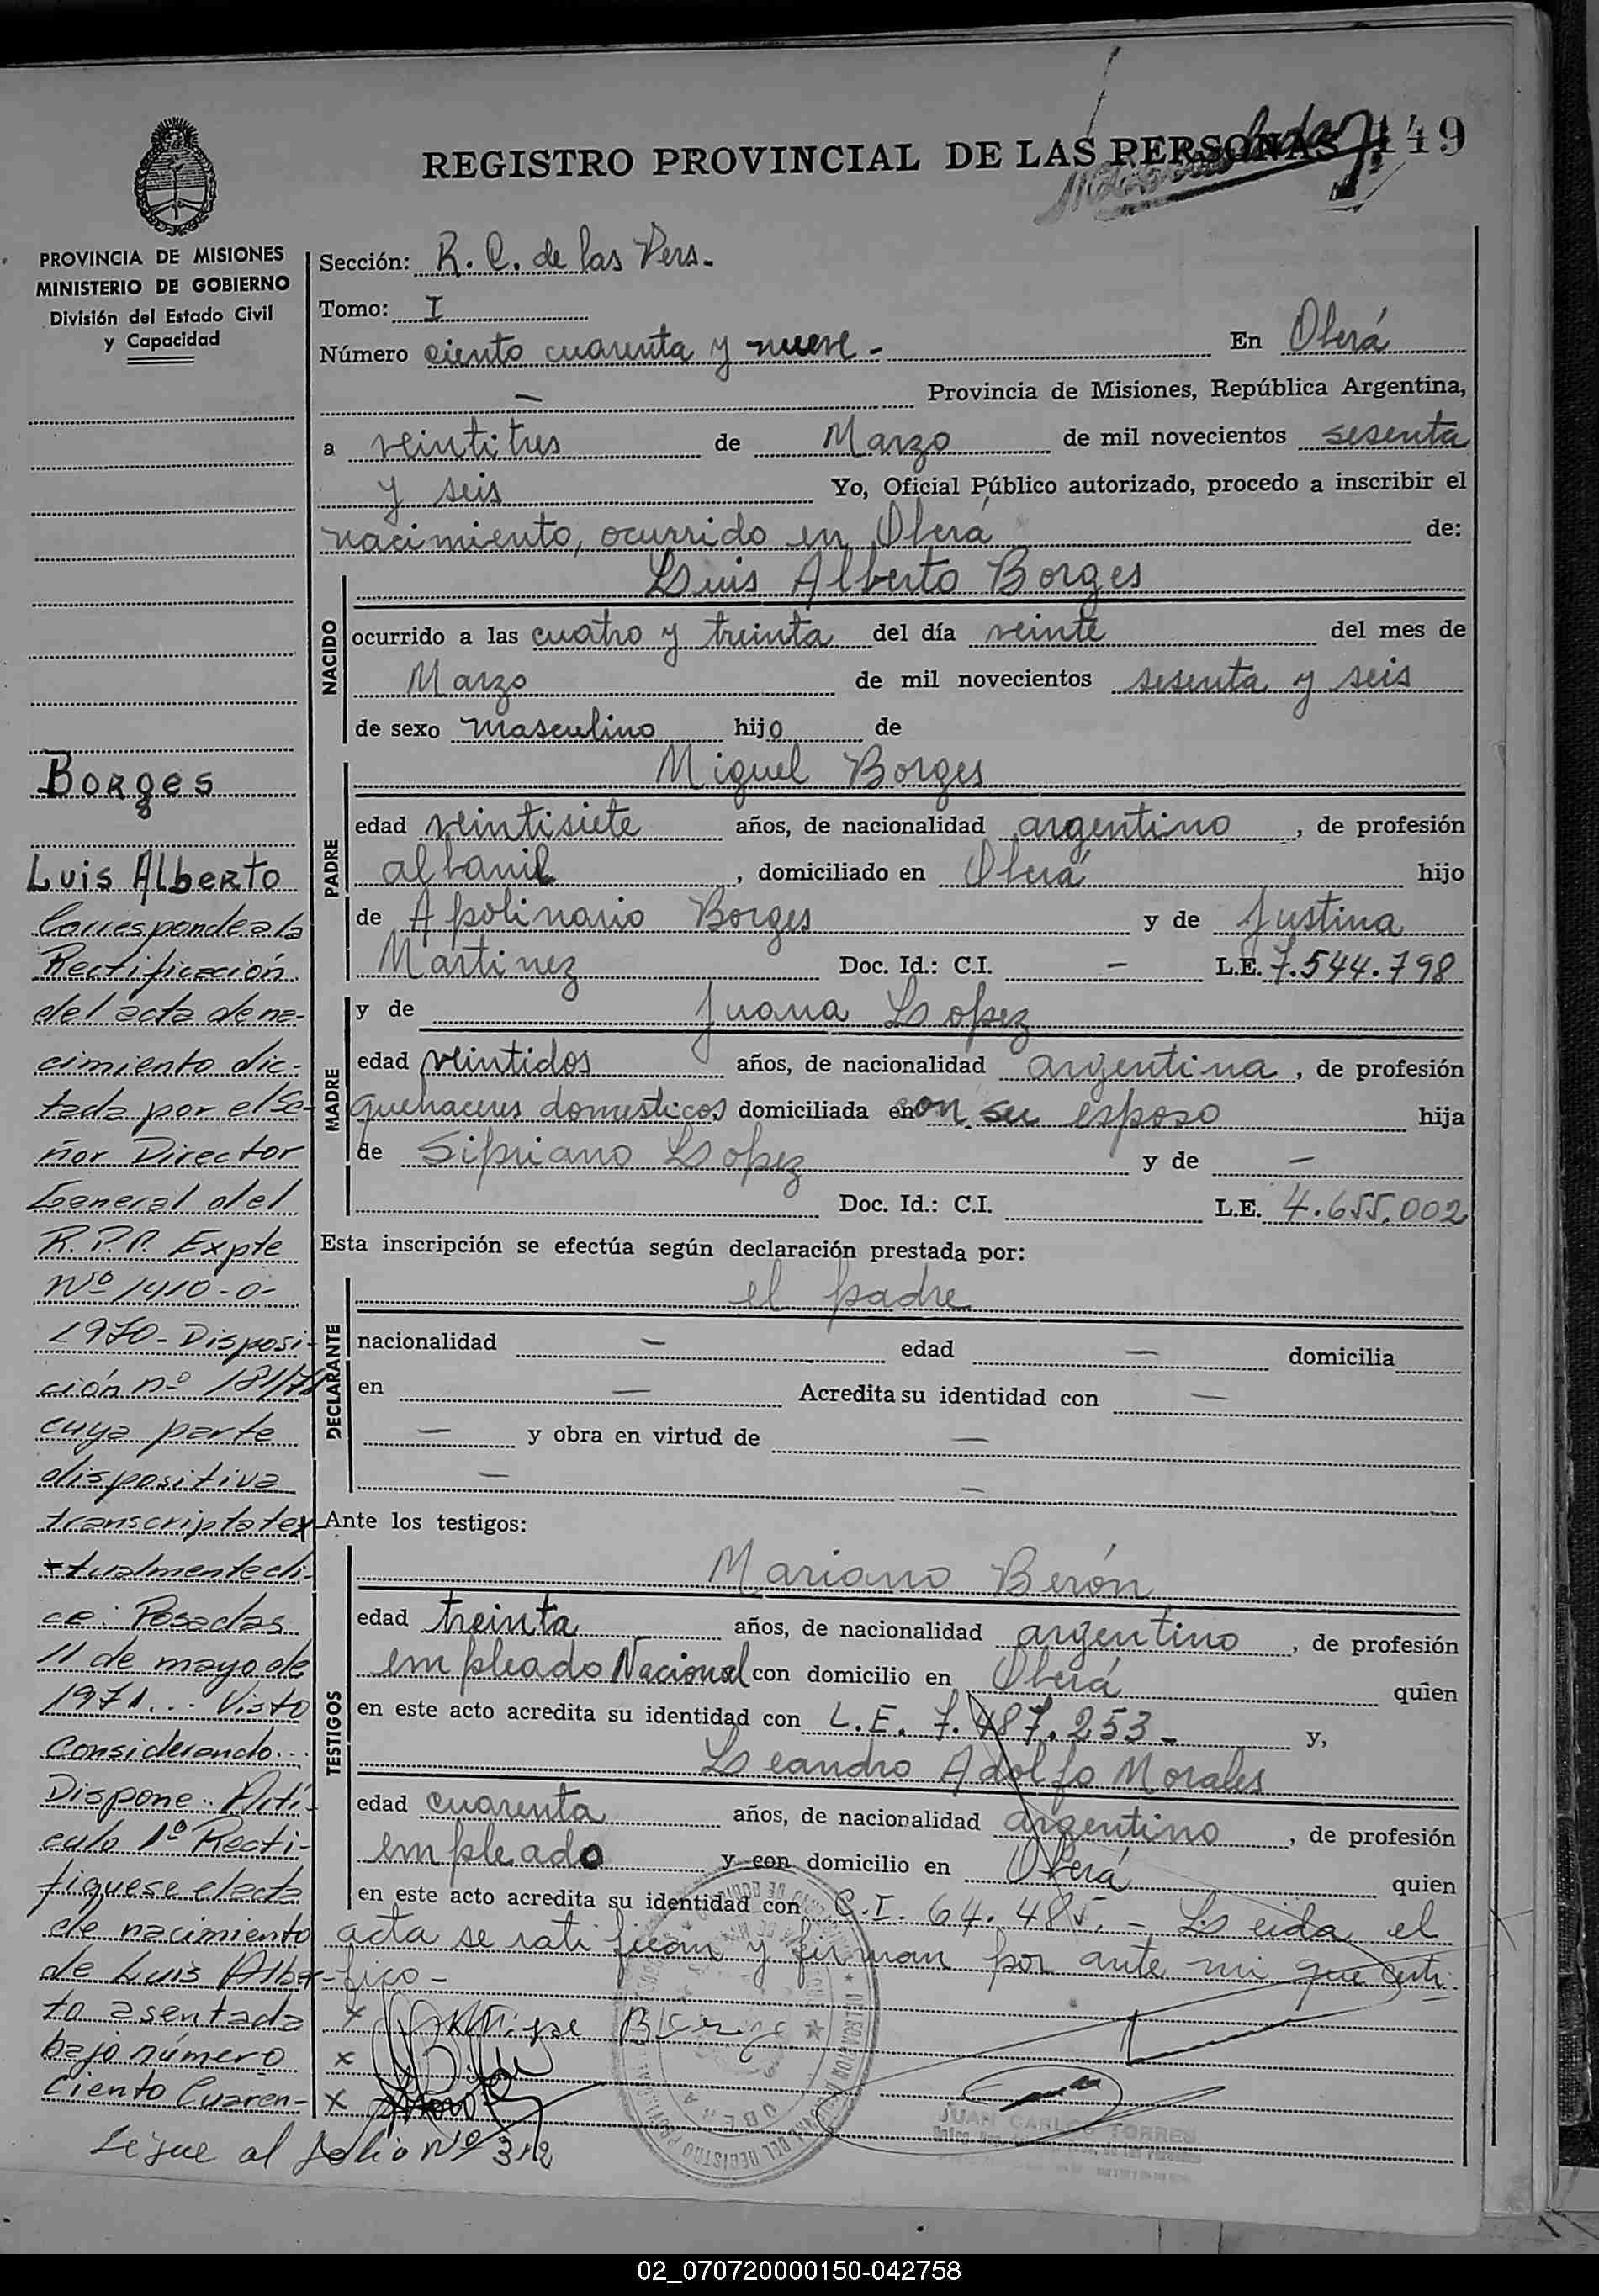 REGISTRO PROVINCIAL DE LAS PERSONAS 149
PROVINCIA DE MISIONES
MINISTERIO DE GOBIERNO
División del Estado Civil
y Capacidad
Borges
Luis Alberto
Corresponde a la
Rectificación
del acta de na-
cimiento dic-
tada por el Se-
ñor Director
General del
R.P.P. Expte
Nº 1410-0-
1970- Disposi-
ción nº 181/71
cuya parte
dispositiva
transcripta tex
tualmente di-
ce: Posadas
11 de mayo de
1971... Visto
Considerando...
Dispone: Artí-
culo 1º Recti-
fíquese el acta
de nacimiento
de Luis Alber-
to asentada
bajo número
Ciento Cuaren-
Sigue al folio Nº 312
Sección: R. C. de las Pers.
Tomo: I
Número ciento cuarenta y nueve - En Oberá
— Provincia de Misiones, República Argentina,
a veintitres de Marzo de mil novecientos sesenta
y seis Yo, Oficial Público autorizado, procedo a inscribir el
nacimiento, ocurrido en Oberá de:
NACIDO
Luis Alberto Borges
ocurrido a las cuatro y treinta del día veinte del mes de
Marzo de mil novecientos sesenta y seis
de sexo masculino hijo de
PADRE
Miguel Borges
edad veintisiete años, de nacionalidad argentino, de profesión
albanil, domiciliado en Oberá hijo
de Apolinario Borges y de Justina
Martinez Doc. Id.: C.I. — L.E. 7.544.798
MADRE
y de Juana Lopez
edad veintidos años, de nacionalidad argentina, de profesión
quehaceres domesticos domiciliada en con su esposo hija
de Sipriano Lopez y de —
Doc. Id.: C.I. L.E. 4.655.002
Esta inscripción se efectúa según declaración prestada por:
DECLARANTE
el padre
nacionalidad — edad — domicilia
en — Acredita su identidad con —
— y obra en virtud de —
— —
Ante los testigos:
TESTIGOS
Mariano Berón
edad treinta años, de nacionalidad argentino, de profesión
empleado Nacional con domicilio en Oberá quien
en este acto acredita su identidad con L.E. 7.487.253 - y,
Leandro Adolfo Morales
edad cuarenta años, de nacionalidad argentino, de profesión
empleado y con domicilio en Oberá quien
en este acto acredita su identidad con C.I. 64.485. - Leida el
acta se ratifican y firman por ante mi que certi-
fico -
x
x
x
JUAN CARLOS TORRES
02_070720000150-042758